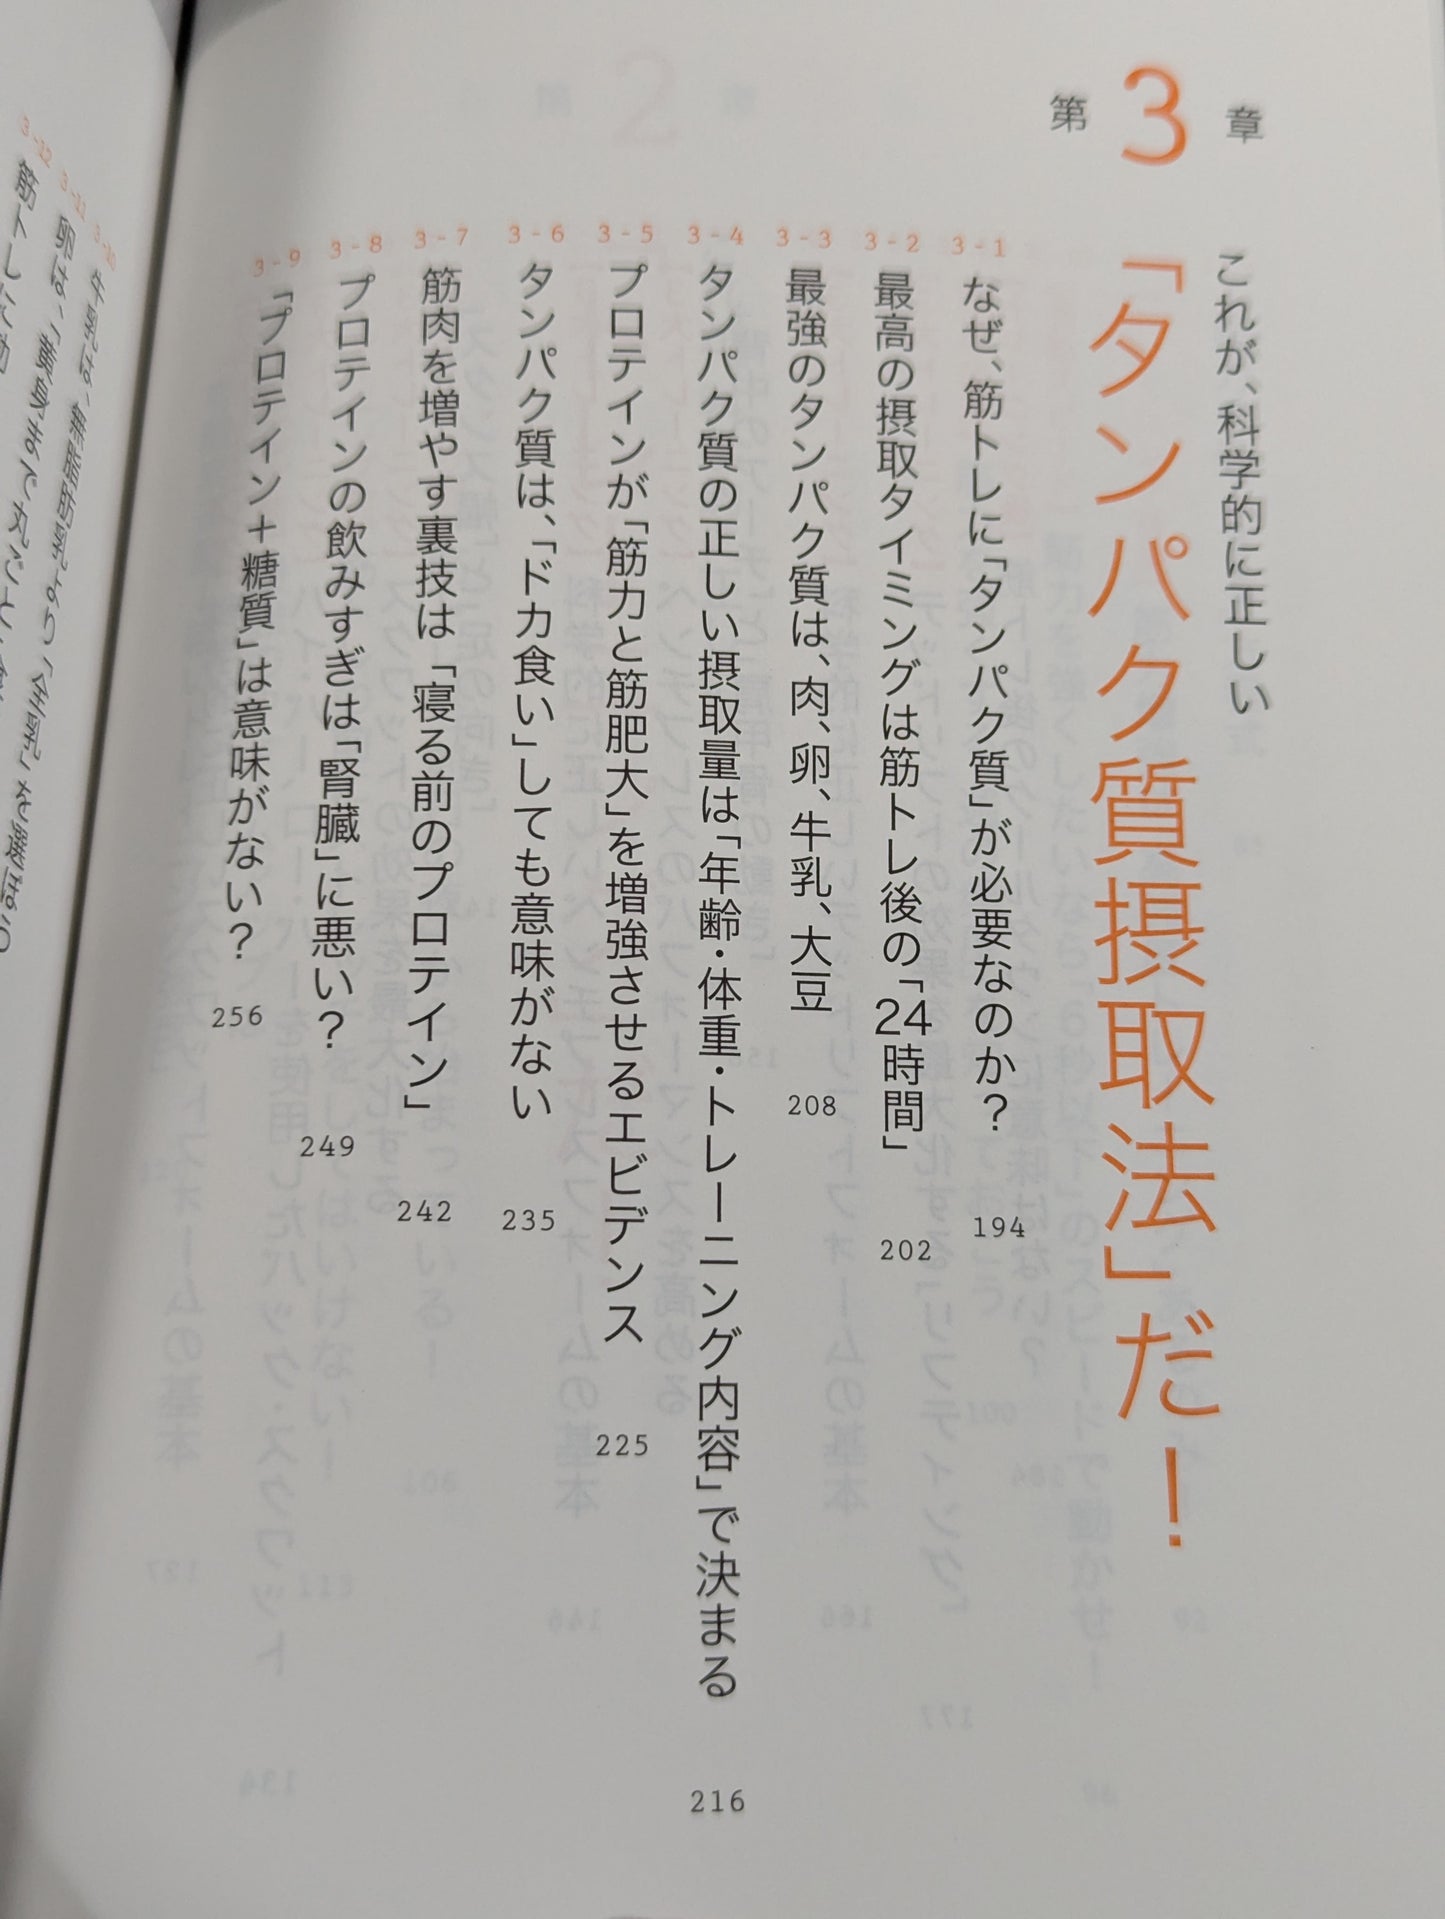 第3章
これが、科学的に正しい
「タンパク質摂取法」だ！
3-1 なぜ、筋トレに「タンパク質」が必要なのか？ 194
3-2 最高の摂取タイミングは筋トレ後の「24時間」 202
3-3 最強のタンパク質は、肉、卵、牛乳、大豆 208
3-4 タンパク質の正しい摂取量は「年齢・体重・トレーニング内容」で決まる 216
3-5 プロテインが「筋力と筋肥大」を増強させるエビデンス 225
3-6 タンパク質は、「ドカ食い」しても意味がない 235
3-7 筋肉を増やす裏技は「寝る前のプロテイン」 242
3-8 プロテインの飲みすぎは「腎臓」に悪い？ 249
3-9 「プロテイン＋糖質」は意味がない？ 256
3-10 牛乳は、無脂肪乳より「全乳」を選ぼう
3-11 卵は、「黄身まで丸ごと
3-12 筋トレ